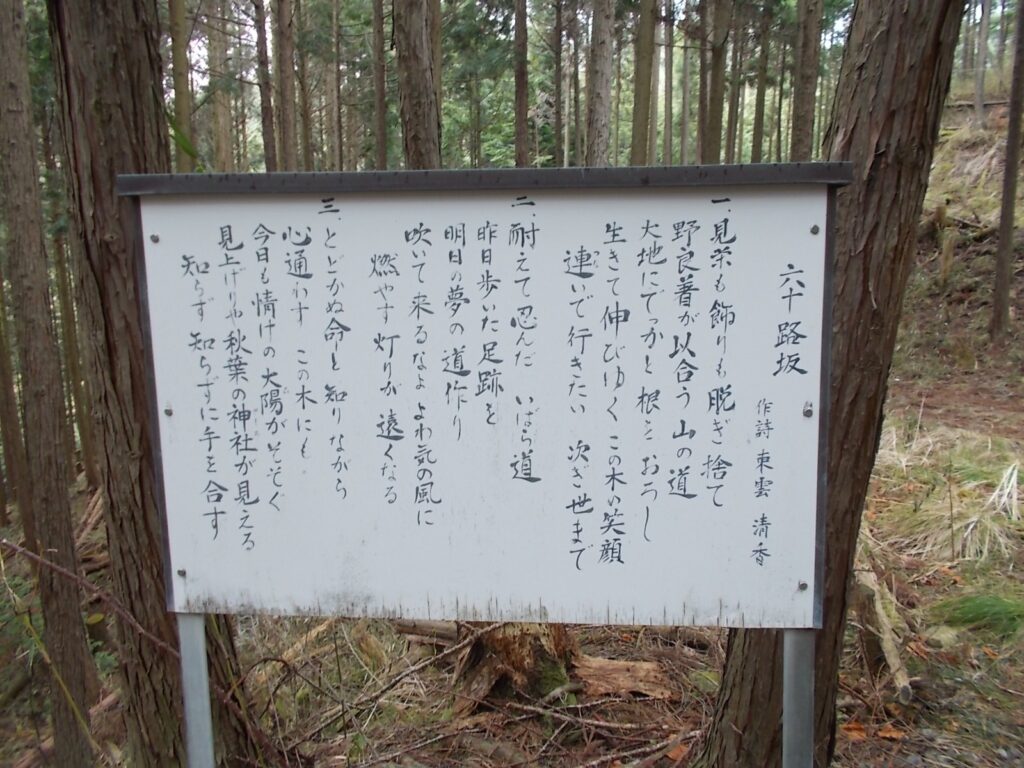 六十路坂
作詩 東雲 清香
一、見栄も飾りも脱ぎ捨て
野良着が似合う 山の道
大地にでっかと 根をおろし
生きて 伸びゆく この木の 笑顔
連いで 行きたい 次ぎ世まで
二、耐えて 忍んだ いばら道
昨日歩いた 足跡を
明日の夢の 道作り
吹いて 来るなよ よわ気の風に
燃やす 灯りが 遠くなる
三、とどかぬ命と 知りながら
心通わす この木にも
今日も 情けの 太陽が そそぐ
見上げりや 秋葉の 神社が 見える
知らず 知らずに 手を 合す